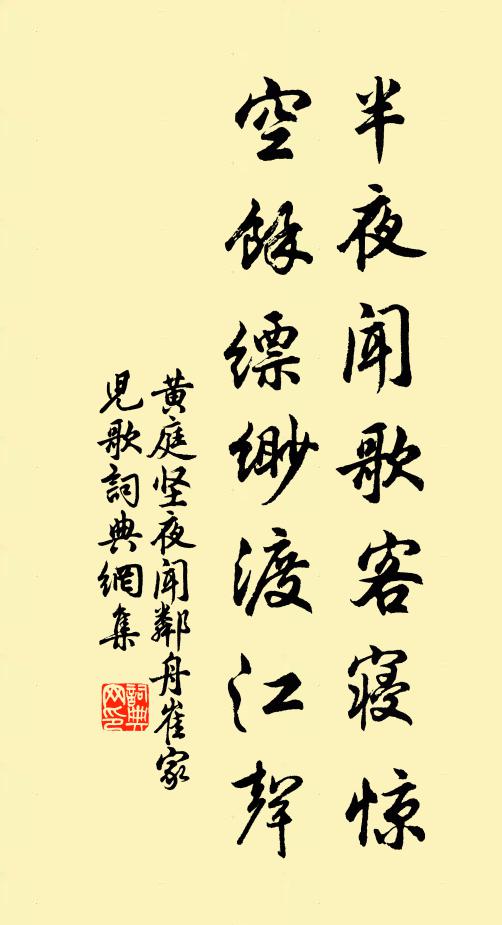 半夜闻歌客寝惊
空馀缥缈渡江聲
黄庭坚夜闻鄰舟崔家
児歌詞典網集
詞典网印